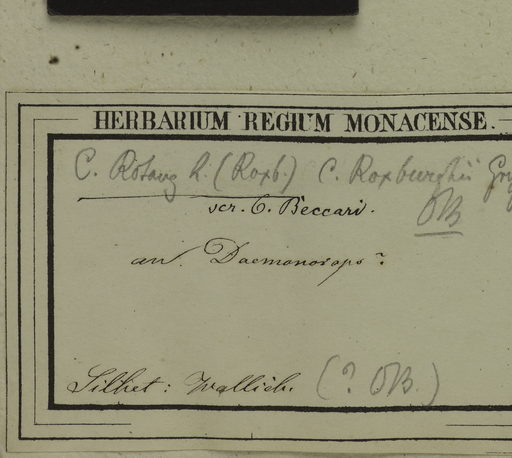 HERBARIUM REGIUM MONACENSE.
C. Rotang L. (Roxb.) C. Roxburghii
scr. O. Beccari.
OB
an Daemonorops?
Silhet: Wallich. (? OB.)